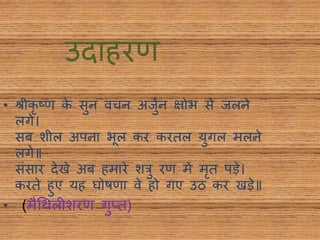 उदाहरण
• श्रीकृष्ण के सुन वचन अर्जुन क्षोभ से जलने
लगे।
सब शील अपना भूल कर करतल युगल मलने
लगे॥
संसार देखे अब हमारे शत्रु रण में मृत पड़े।
करते हुए यह घोषणा वे हो गए उठ कर खड़े॥
• (मैथिलीशरण गुप्त)